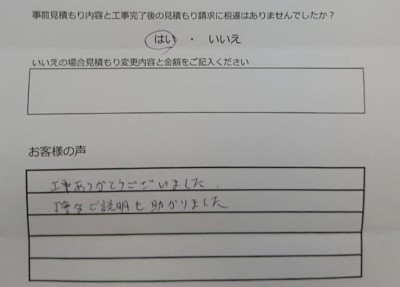 事前見積もり内容と工事完了後の見積もり請求に相違はありませんでしたか？
はい ・ いいえ
いいえの場合見積もり変更内容と金額をご記入ください
お客様の声
工事ありがとうございました
丁寧なご説明も助かりました